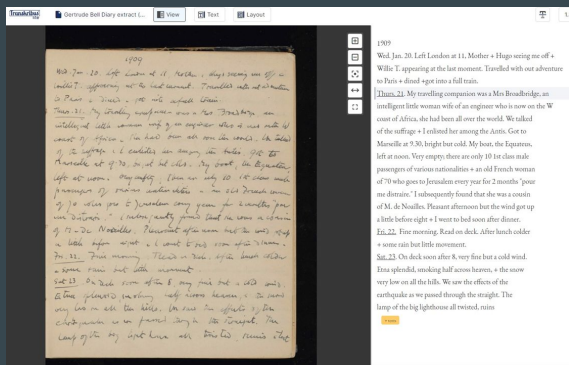 Transkribus
Gertrude Bell Diary extract (...
View
Text
Layout
1909
Wed. Jan. 20. Left London at 11, Mother + Hugo seeing me off +
Willie T. appearing at the last moment. Travelled with out adventure
to Paris + dined +got into a full train.
Thurs. 21. My travelling companion was a Mrs Broadbridge, an
intelligent little woman wife of an engineer who is now on the W
coast of Africa, she had been all over the world. We talked
of the suffrage + I enlisted her among the Antis. Got to
Marseille at 9.30, bright but cold. My boat, the Equateur,
left at noon. Very empty; there are only 10 1st class male
passengers of various nationalities + an old French woman
of 70 who goes to Jerusalem every year for 2 months "pour
me distraire." I subsequently found that she was a cousin
of M. de Noailles. Pleasant afternoon but the wind got up
a little before eight + I went to bed soon after dinner.
Fri. 22. Fine morning. Read on deck. After lunch colder
+ some rain but little movement.
Sat. 23. On deck soon after 8, very fine but a cold wind.
Etna splendid, smoking half across heaven, + the snow
very low on all the hills. We saw the effects of the
earthquake as we passed through the straight. The
lamp of the big lighthouse all twisted, ruins